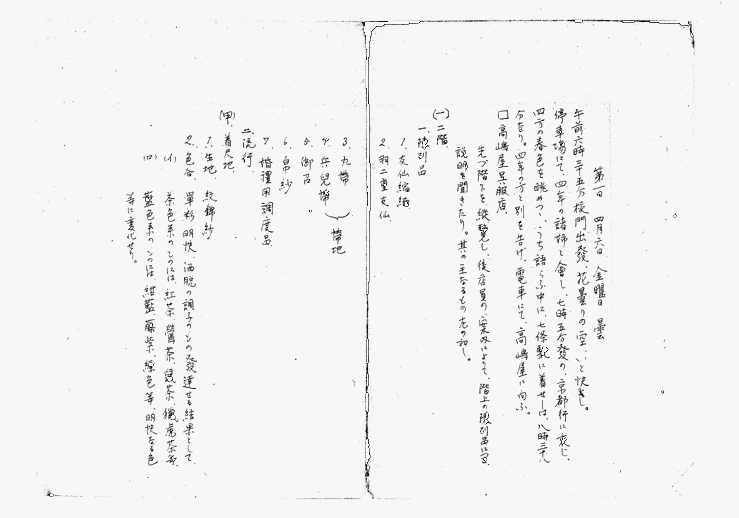 第一日 四月六日 金曜日 曇
午前六時三十五分校門出發、花曇りの空、いと快よし。
停車場にて、四年の諸姉と會し、七時五分發の、京都行に乘じ、
四方の春色を眺めつゝ、うち語らふ中に、七條驛に着せしは、八時三十八
分なり。四年の方と別を告げ、電車にて、高嶋屋に向ふ。
□高嶋屋呉服店。
先づ階下を縱覽し、後店員の、案内によりて、階上の陳列品に
説明を聞きたり。其の主なるもの左の如し。
(一)二階
一、陳列品
1. 友仙縮緬
2. 羽二重友仙
3. 丸帶
4. 兵兒帶 } 帶地
5. 御召。
6. 帛紗
7. 婚禮用調度品
二、流行、
(甲)着尺地、
1. 生地、紋錦紗
2. 色合、單彩、明快、洒脱の調子のもの發達せる結果として、
(イ) 茶色系のものには、紅茶、鶯茶、鼠茶、獵虎茶等、
(ロ) 藍色系のものには、紺藍、藤紫、紫色等明快なる色
等に變化せり。